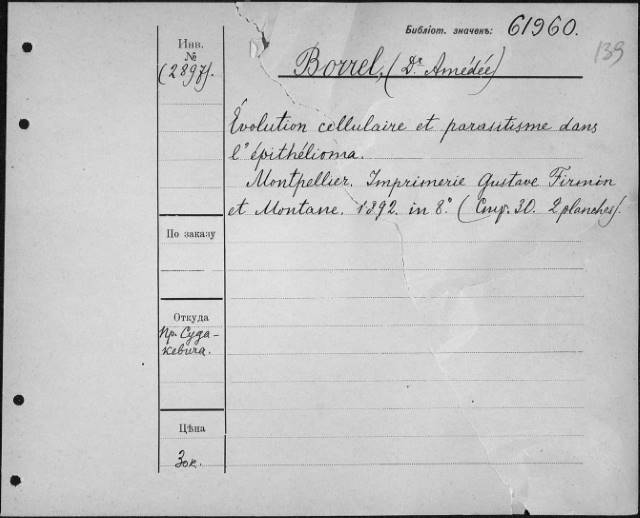 Библіот. значекъ: 61960.
139
Инв.
№
(2897).
Borrel, (Dr Amédée)
Évolution cellulaire et parasitisme dans
l'épithélioma.
Montpellier. Imprimerie Gustave Firmin
et Montane. 1892. in 8.° (Стр. 30. 2 planches).
По заказу
Откуда
Пр. Суда-
кевича.
Цѣна
30к.